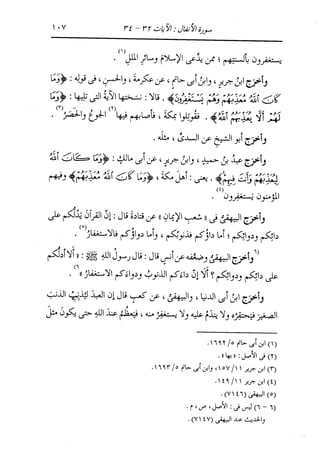 سورة الأنفال : الآيات ٣٢ - ٣٤ ١٠٧
يستغفرون بألسنتهم ؛ ممن يدَّعى الإسلام وسائر الملل(١).
وأخرج ابن جرير، وابن أبى حاتم، عن عكرمة، والحسن، فى قوله: ﴿وَمَا
كَانَ اللَّهُ مُعَذِّبَهُمْ وَهُمْ يَسْتَغْفِرُونَ﴾. قالا: نسَختها الآية التى تليها: ﴿وَمَا
لَهُمْ أَلَّا يُعَذِّبَهُمُ اللَّهُ﴾. فقوتلوا بمكة، فأصابهم فيها(٢) الجوع والحَصْرُ(٣).
وأخرج أبو الشيخ عن السدىّ، مثله.
وأخرج عبد بن حميد، وابن جرير، عن أبى مالك: ﴿وَمَا كَانَ اللَّهُ
لِيُعَذِّبَهُمْ وَأَنتَ فِيهِمْ﴾. يعنى: أهل مكة، ﴿وَمَا كَانَ اللَّهُ مُعَذِّبَهُمْ﴾ وفيهم
المؤمنون يستغفرون(٤).
وأخرج البيهقىُّ فى «شعب الإيمان» عن قتادة قال: إن القرآن يَدُلُّكم على
دائكم ودوائكم ؛ أما داؤكم فذنوبكم، وأما دواؤكم فالاستغفارُ(٥).
(٦)وأخرج البيهقى وضعَّفه عن أنس قال: قال رسول الله ﷺ: «ألا أدلُّكم
على دائكم ودوائكم؟ ألا إن داءكم الذنوبُ ودواءَكم الاستغفارُ»(٦).
وأخرج ابن أبى الدنيا، والبيهقى، عن كعب قال إن العبدَ ليُذنِبُ الذنبَ
الصغيرَ فيحتقِرُه ولا يندمُ عليه ولا يستغفرُ منه، فيعظُم عند الله حتى يكون مثلَ
(١) ابن أبى حاتم ١٦٩٢/٥.
(٢) فى الأصل: «بها».
(٣) ابن جرير ١٥٧/١١، وابن أبى حاتم ١٦٩٣/٥.
(٤) ابن جرير ١٤٩/١١.
(٥) البيهقى (٧١٤٦).
(٦ - ٦) ليس فى: الأصل، ص، م.
والحديث عند البيهقى (٧١٤٧).